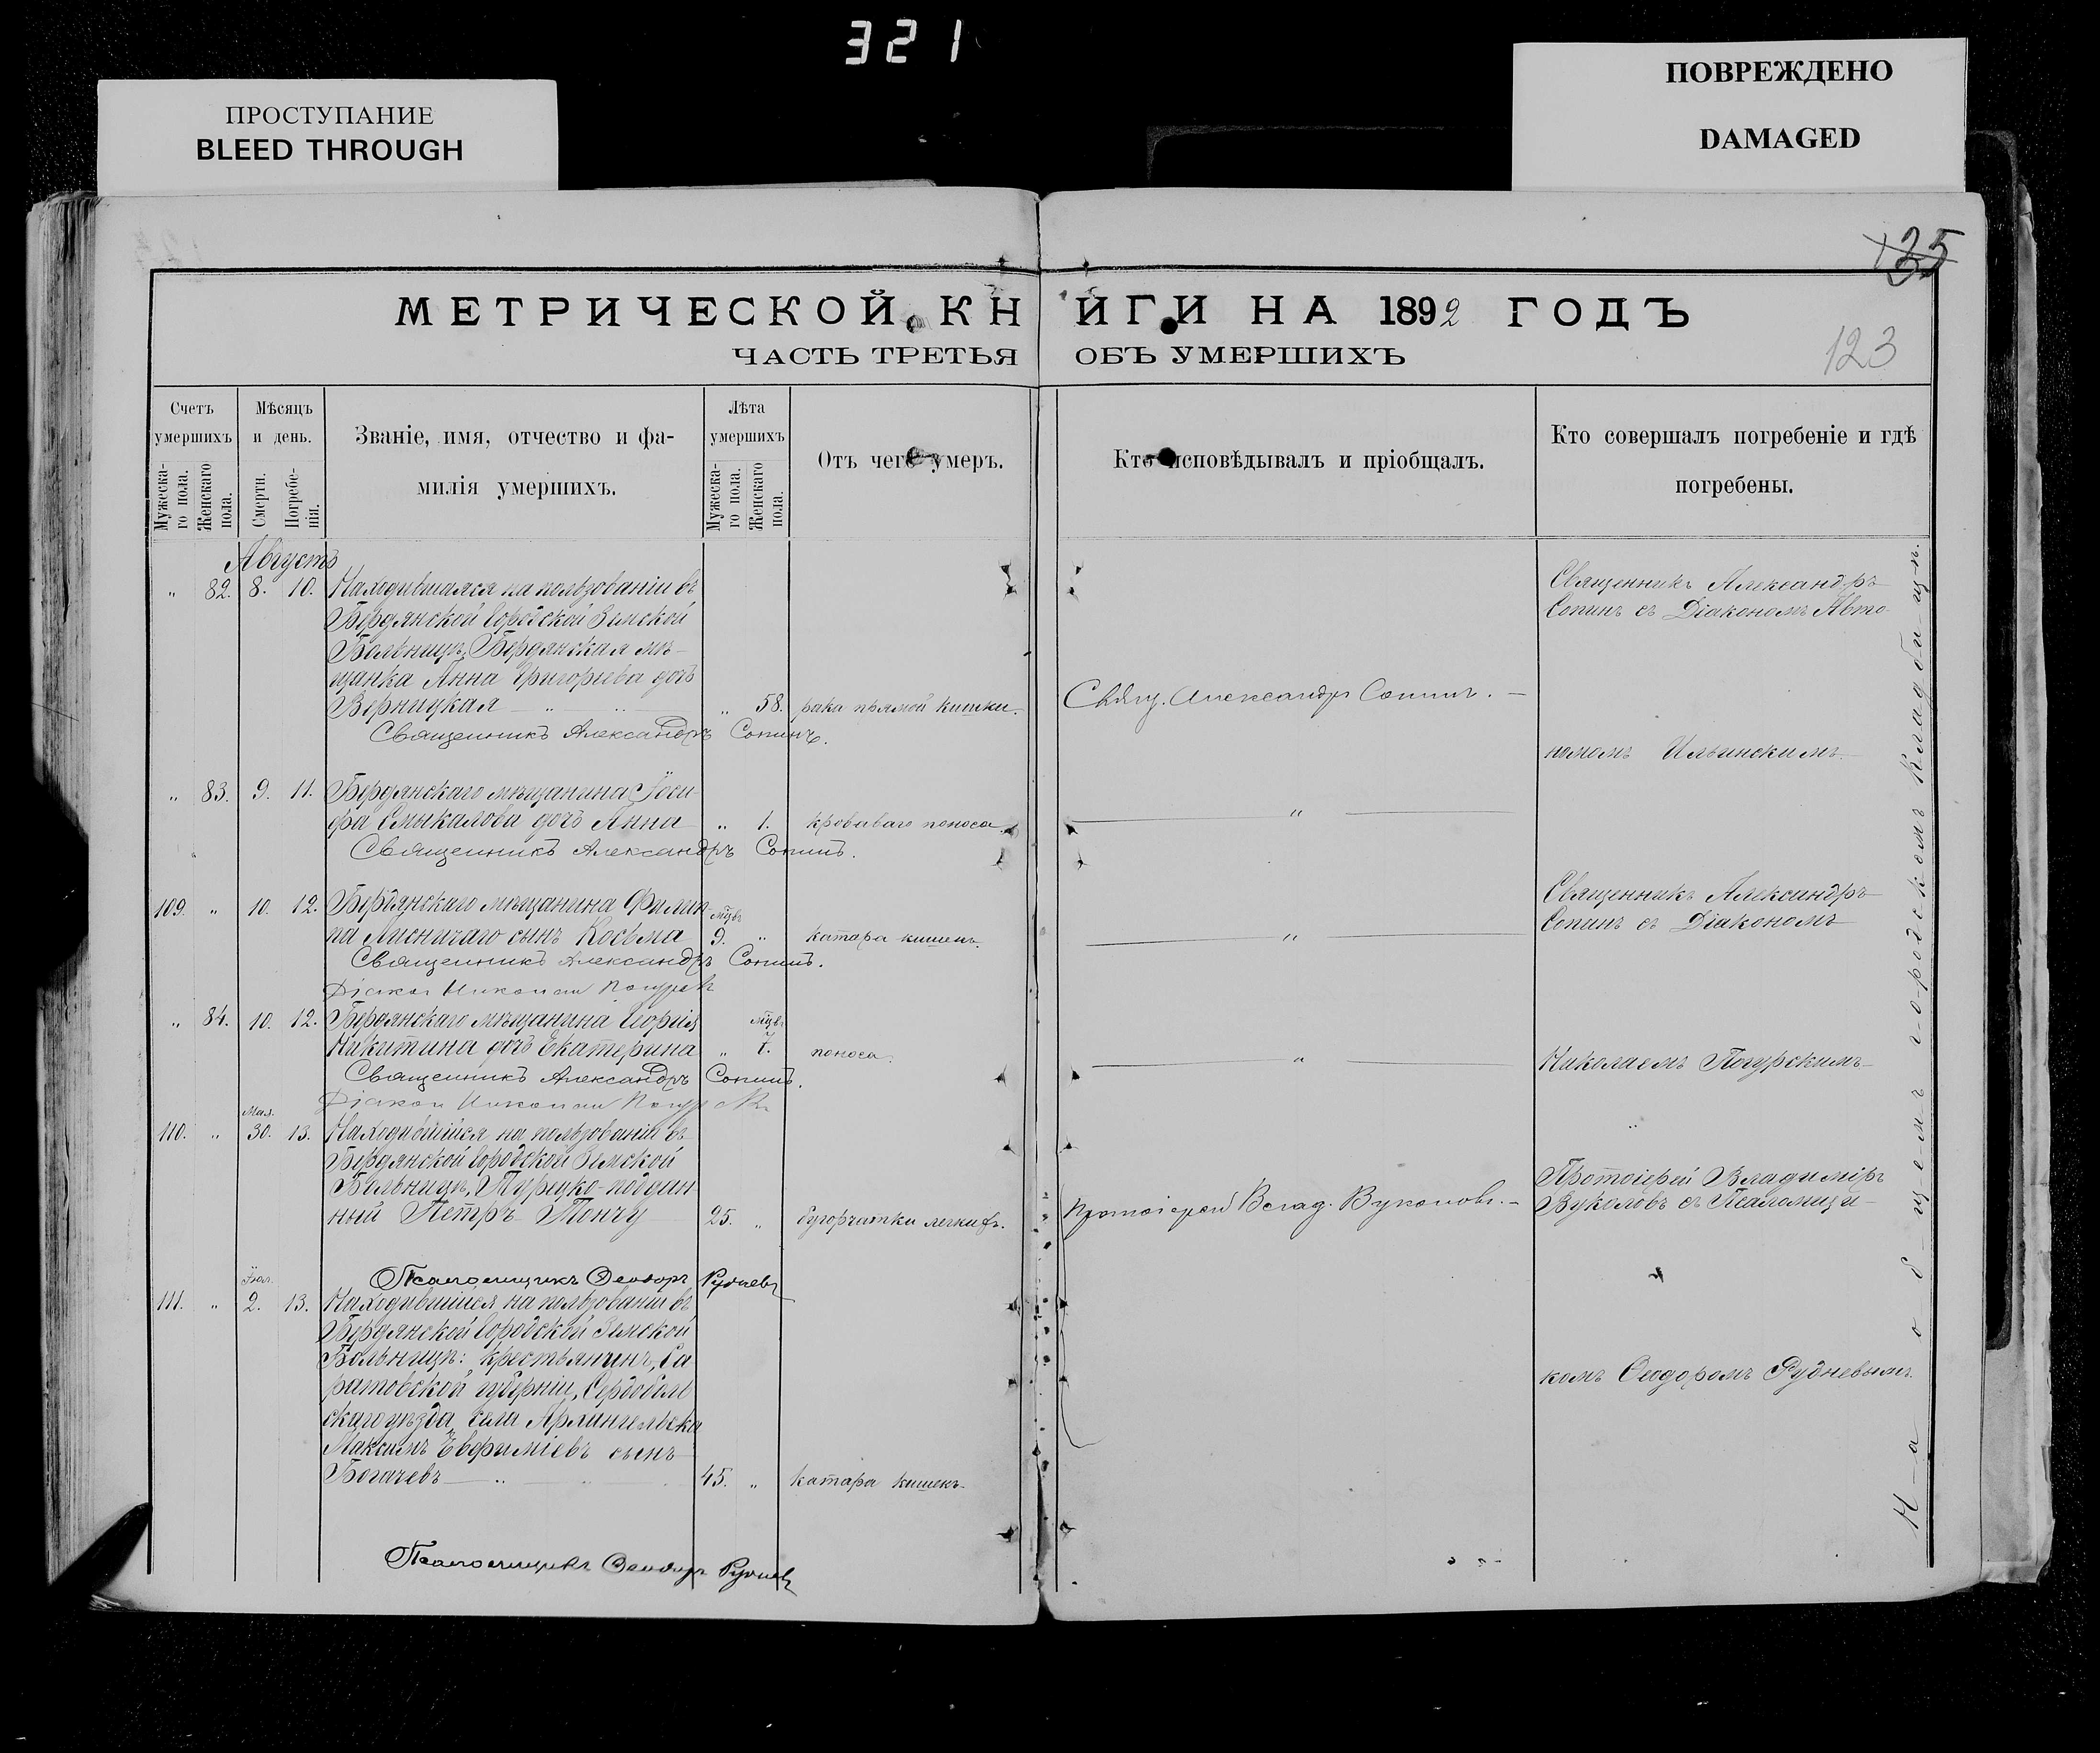 321
ПРОСТУПАНИЕ
BLEED THROUGH
ПОВРЕЖДЕНО
DAMAGED
135
123
МЕТРИЧЕСКОЙ КНИГИ НА 1892 ГОДЪ
ЧАСТЬ ТРЕТЬЯ ОБЪ УМЕРШИХЪ
Счетъ умершихъ
Мужеска-го пола.
Женскаго пола.
Мѣсяцъ и день.
Смерти.
Погребе-нія.
Званіе, имя, отчество и фа-
милія умершихъ.
Лѣта умершихъ
Мужеска-го пола.
Женскаго пола.
Отъ чего умеръ.
Кто исповѣдывалъ и пріобщалъ.
Кто совершалъ погребеніе и гдѣ
погребены.
Августъ
„ 82. 8. 10. Находившаяся на пользованіи въ
Бердянской Городской Земской
Больницѣ, Бердянская мѣ-
щанка Анна Григорьева дочь
Верницкая „ 58. рака прямой кишки. Свящ. Александръ Сопинъ.
Священникъ Александръ Сопинъ.
Священникъ Александръ
Сопинъ съ Діакономъ Авто-
номомъ Ильинскимъ.
„ 83. 9. 11. Бердянскаго мѣщанина Іоси-
фа Смыкалова дочь Анна „ 1. кроваваго поноса. „
Священникъ Александръ Сопинъ.
109. „ 10. 12. Бердянскаго мѣщанина Филип-
па Лисничаго сынъ Косьма мцв 9. „ катара кишекъ. „
Священникъ Александръ Сопинъ.
Діакон Николай Погурск
Священникъ Александръ
Сопинъ съ Діакономъ
„ 84. 10. 12. Бердянскаго мѣщанина Георгія
Никитина дочь Екатерина „ мцв 7. поноса. „
Священникъ Александръ Сопинъ.
Діакон Николай Погурск
Николаемъ Погурскимъ
110. „ Мая. 30. 13. Находившійся на пользованіи въ
Бердянской Городской Земской
Больницѣ, Турецко-поддан-
ный Петръ Тончу 25. „ бугорчатки легкихъ. Протоіерей Влад. Вуколовъ.
Псаломщикъ Ѳеодоръ Рудневъ
Протоіерей Владиміръ
Вуколовъ съ Псаломщи-
комъ Ѳеодоромъ Рудневымъ.
111. „ 2. 13. Находившійся на пользованіи въ
Бердянской Городской Земской
Больницѣ: крестьянинъ, Са-
ратовской губерніи, Сердоболь
скаго уѣзда, села Архангельска
Максимъ Евфиміевъ сынъ
Богачевъ 45. „ катара кишекъ.
Псаломщикъ Ѳеодоръ Рудневъ
На общемъ городскомъ кладбищѣ.